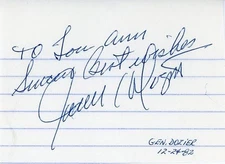 To Lou Ann
Sincere Best wishes
James L Dozier
GEN. DOZIER
12-24-82